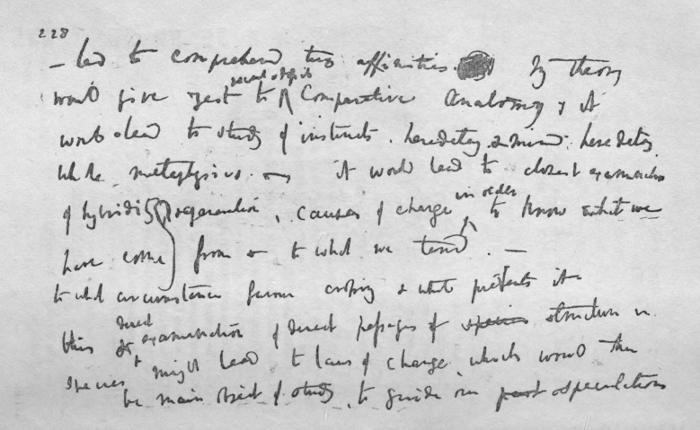 228
– led to comprehend true affinities. My theory
would give zest to recent & fossil Comparative Anatomy, & it
would lead to study of instincts, heredity & mind heredity,
whole metaphysics. – it would lead to closest examination
of hybridity & generation, causes of change in order to know what we
have come from & to what we tend. –
to what circumstances favour crossing & what prevents it –
this & direct examination of direct passages of species structure in
species might lead to laws of change, which would then
be main object of study, to guide our past speculations